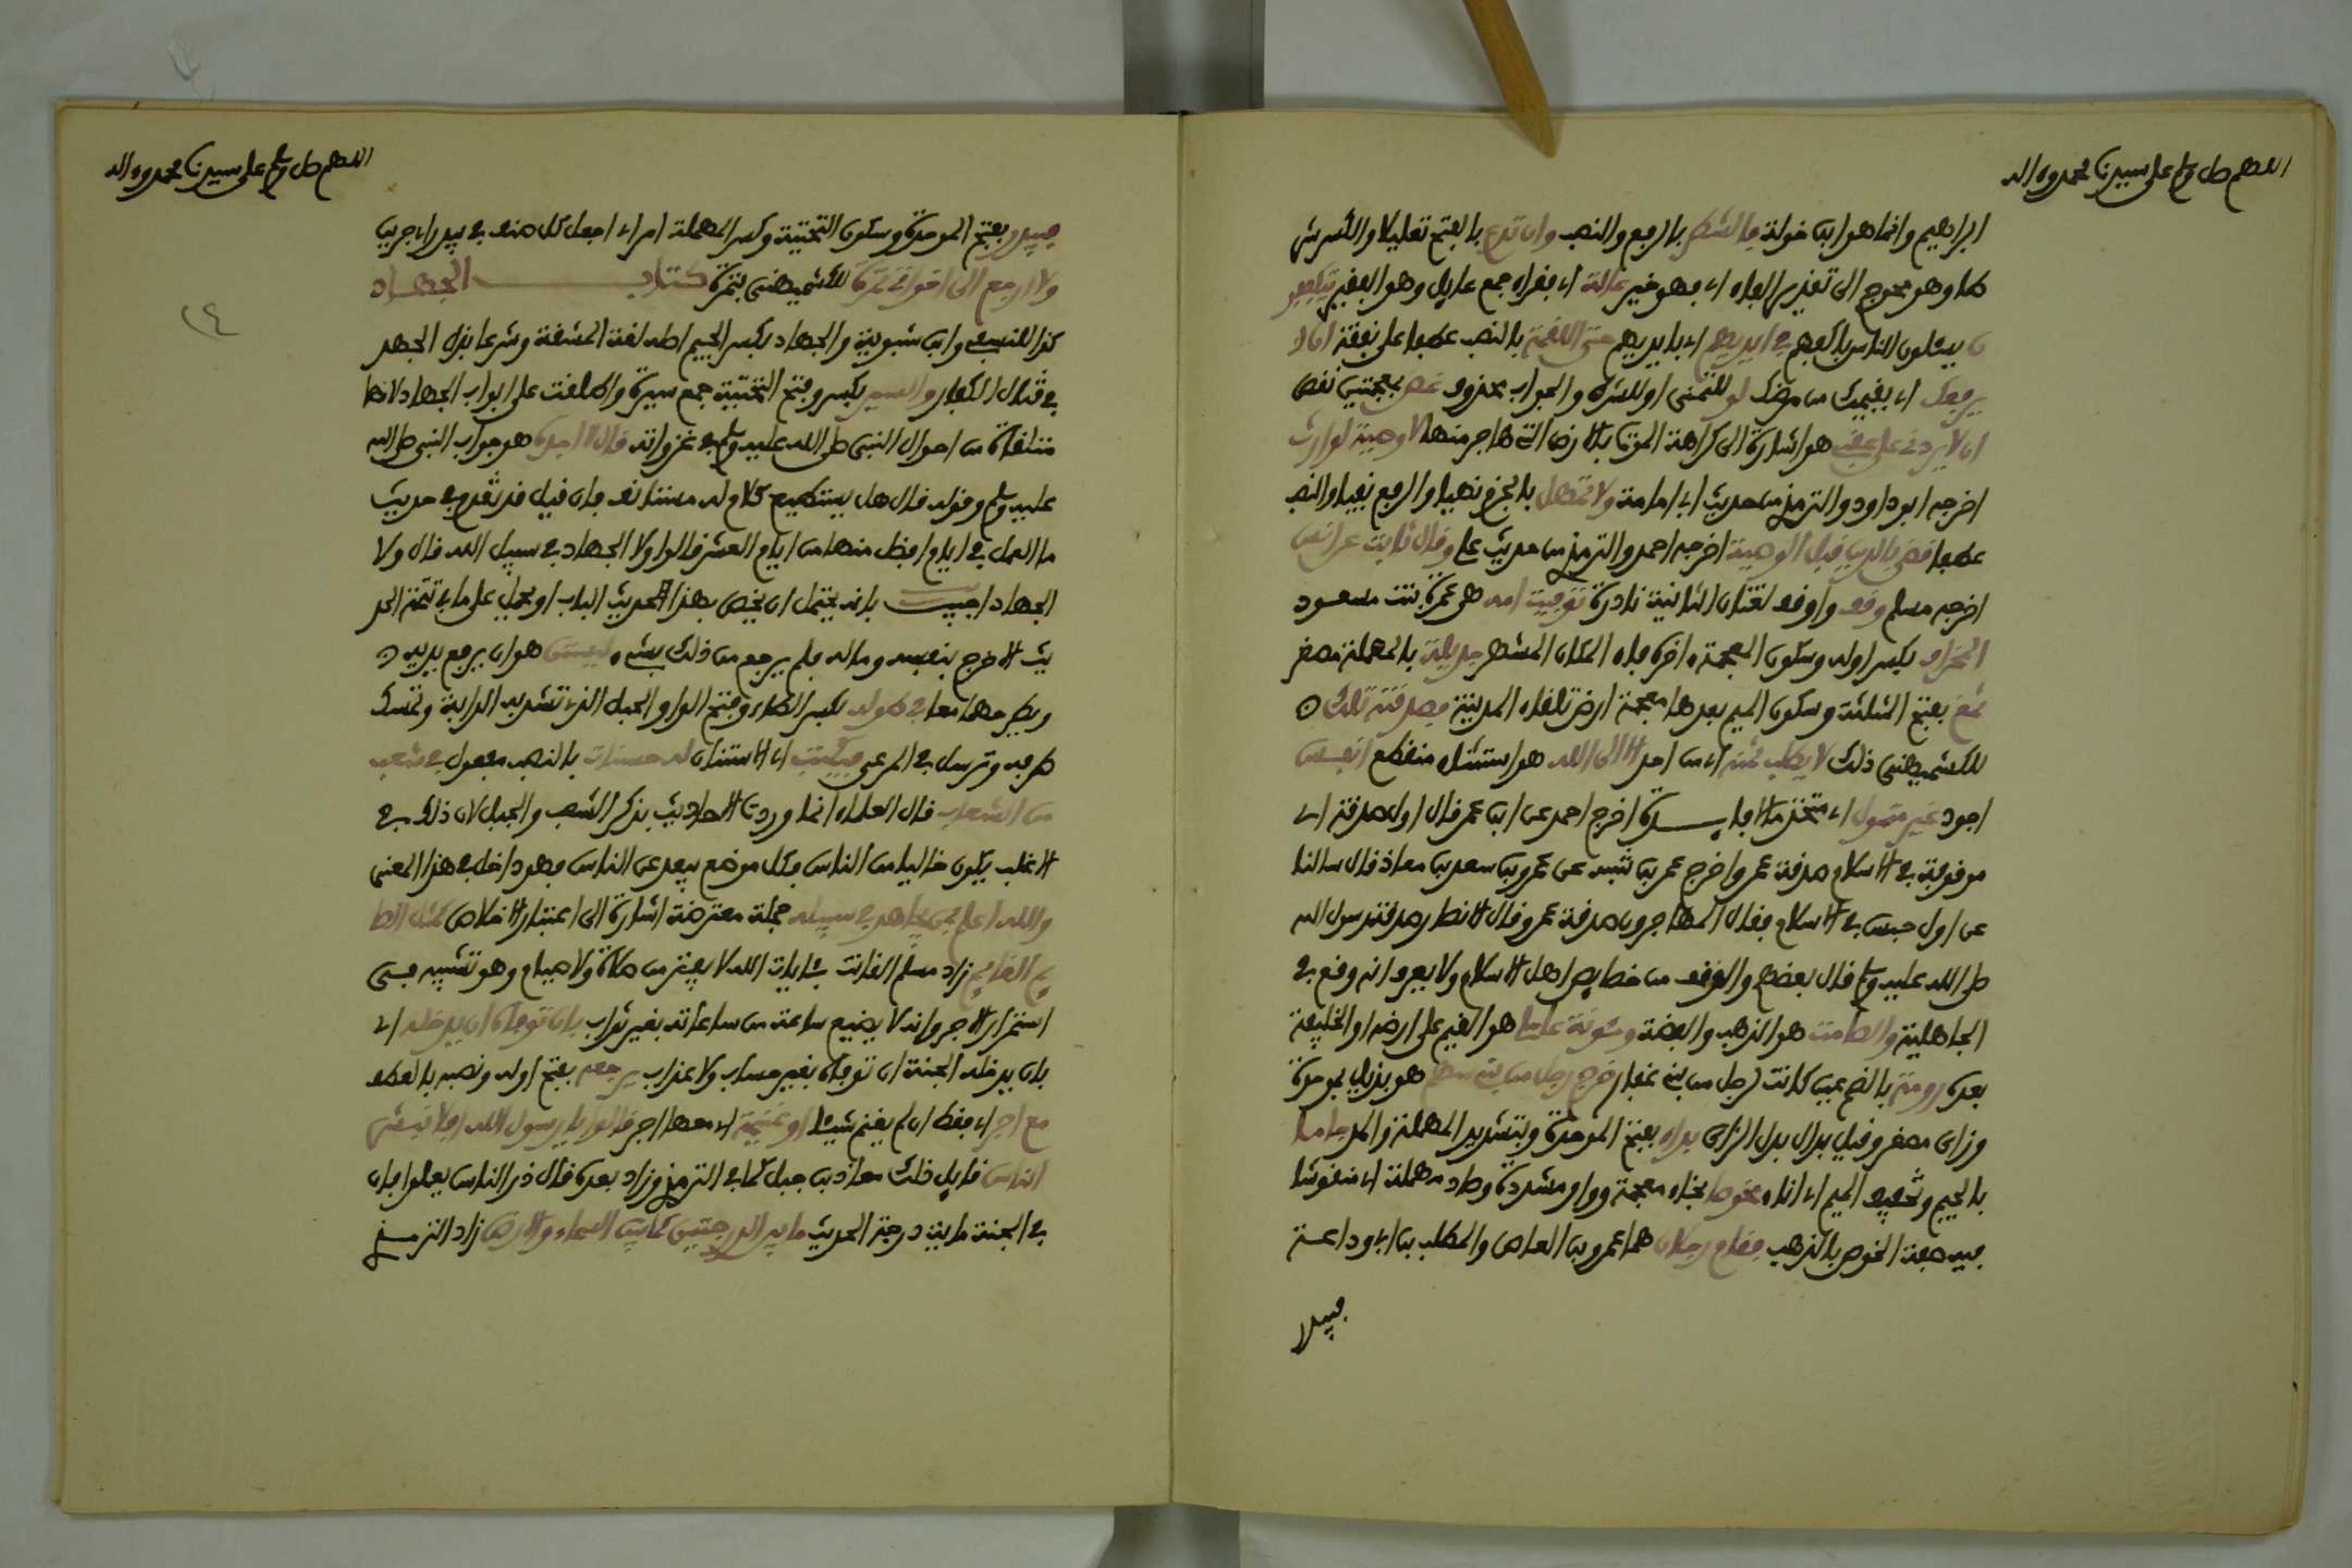 اللهم صل وسلم على سيدنا محمد وءاله
ابراهيم وانما هو ابن خولة فالشطر بالرفع والنصب وان تدع بالفتح تعليلا والكسر شر
طا وهو محوج الى تقدير الفاء اي فهو خير عالة اي فقراء جمع عايل وهو الفقير يتكففو
ن يسئلون الناس باكفهم في ايديهم اي بايديهم حتى اللقمة بالنصب عطفا على نفقة ان
يرفعك اي يقيمك من مرضك لو للتمني او للشرط والجواب محذوف غض بمعجمتين نقص
ان لا يردني على عقبي هو اشارة الى كراهة الموت بالارض التي هاجر منها لا وصية لوارث
اخرجه ابو داود والترمذي من حديث ابي امامة ولا تمهل بالجزم نهيا والرفع نفيا والنصب
عطفا قضى بالدين قبل الوصية اخرجه احمد والترمذي من حديث علي وقال ثابت عن انس
اخرجه مسلم وقف واوقف لغتان الثانية نادرة توفيت امه هي عمرة بنت مسعود
المخراف بكسر اوله وسكون المعجمة ءاخره فاء المكان المشهر جديلة بالمهملة مصغر
ثمغ بفتح المثلثة وسكون الميم بعدها معجمة ارض تلقاء المدينة فصدقته تلك
للكشميهني ذلك لا يطلب ثمنه اي من احد الا الى الله هو استثناء منقطع انفس
اجود غير متمول اي متخذ مالا فايـــدة اخرج احمد عن ابن عمر قال اول صدقة اي
موقوفة في الاسلام صدقة عمر واخرج عمر بن شبه عن عمرو بن سعد بن معاذ قال سالنا
عن اول حبس في الاسلام فقال المهاجرون صدقة عمر وقال الانصار صدقة رسول الله
صلى الله عليه وسلم قال بعضهم والوقف من خصايص اهل الاسلام ولا يعرف انه وقع في
الجاهلية والصامت هو الذهب والفضة ومئونة عاملي هو القيم على ارضه او الخليفة
بعده رومة بالضم عين كانت لرجل من بني غفار خرج رجل من بني سهم هو بزيل بموحدة
وزاي مصغر وقيل بدال بدل الزاي بداء بفتح الموحدة وبتشديد المهملة والمد جاما
بالجيم وتخفيف الميم اي اناء مخوصا بخاء معجمة وواو مشددة وصاد مهملة اي منقوشا
فيه صفة الخوص بالذهب فقام رجلان هما عمرو بن العاص والمطلب بن ابي وداعة
فبيدر
اللهم صل وسلم على سيدنا محمد وءاله
فبيدر بفتح الموحدة وسكون التحتية وكسر المهملة امر اي اجعل كل صنف في بيدر اي جرين
ولا ارجع الى اخواتي بتمرة للكشميهني تمرة كتاب الجهاد
كذا للنسفي وابن شبوية والجهاد بكسر الجيم اصله لغة المشقة وشرعا بذل الجهد
في قتال الكفار والسير بكسر وفتح التحتية جمع سيرة واطلقت على ابواب الجهاد لانها
متلقاة من احوال النبي صلى الله عليه وسلم في غزواته قال لا اجده هو جواب النبي صلى الله
عليه وسلم وقوله قال هل يستطيع كلام له مستانف فان قيل قد تقدم في حديث
ما العمل في ايام افضل منها من ايام العشر قالوا ولا الجهاد في سبيل الله قال ولا
الجهاد اجيب بانه يحتمل ان يخص بهذا الحديث الباب او يحمل على ما في تتمة الحد
يث الا خرج بنفسه وماله فلم يرجع من ذلك بشيء ليستن هو ان يرفع يديه
ويطرحهما معا في طوله بكسر الطاء وفتح الواو الحبل الذي تشد به الدابة وتمسك
طرفه وترسل في المرعى فيكتب اي الاستنان له حسنات بالنصب مفعول في شعب
من الشعاب قال العلماء انما وردت الاحاديث بذكر الشعب والجبل لان ذلك في
الاغلب يكون خاليا من الناس فكل موضع يبعد عن الناس فهو داخل في هذا المعنى
والله اعلم بمن يجاهد في سبيله جملة معترضة اشارة الى اعتبار الاخلاص كمثل الصا
يم القايم زاد مسلم القانت بئايات الله لا يفتر من صلاة ولا صيام وهو تشبيه في
استمرار الاجر وانه لا يضيع ساعة من ساعاته بغير ثواب بان توفاه ان يدخله اي
بان يدخله الجنة ان توفاه بغير حساب ولا عذاب يرجعه بفتح اوله ونصبه بالعطف
مع اجر اي فقط ان لم يغنم شيئا او غنيمة اي معها اجر قالوا يا رسول الله افلا نبشر
الناس قايل ذلك معاذ بن جبل كما في الترمذي وزاد بعده قال ذر الناس يعملوا فان
في الجنة ماية درجة الحديث ما بين الدرجتين كما بين السماء والارض زاد الترمذي